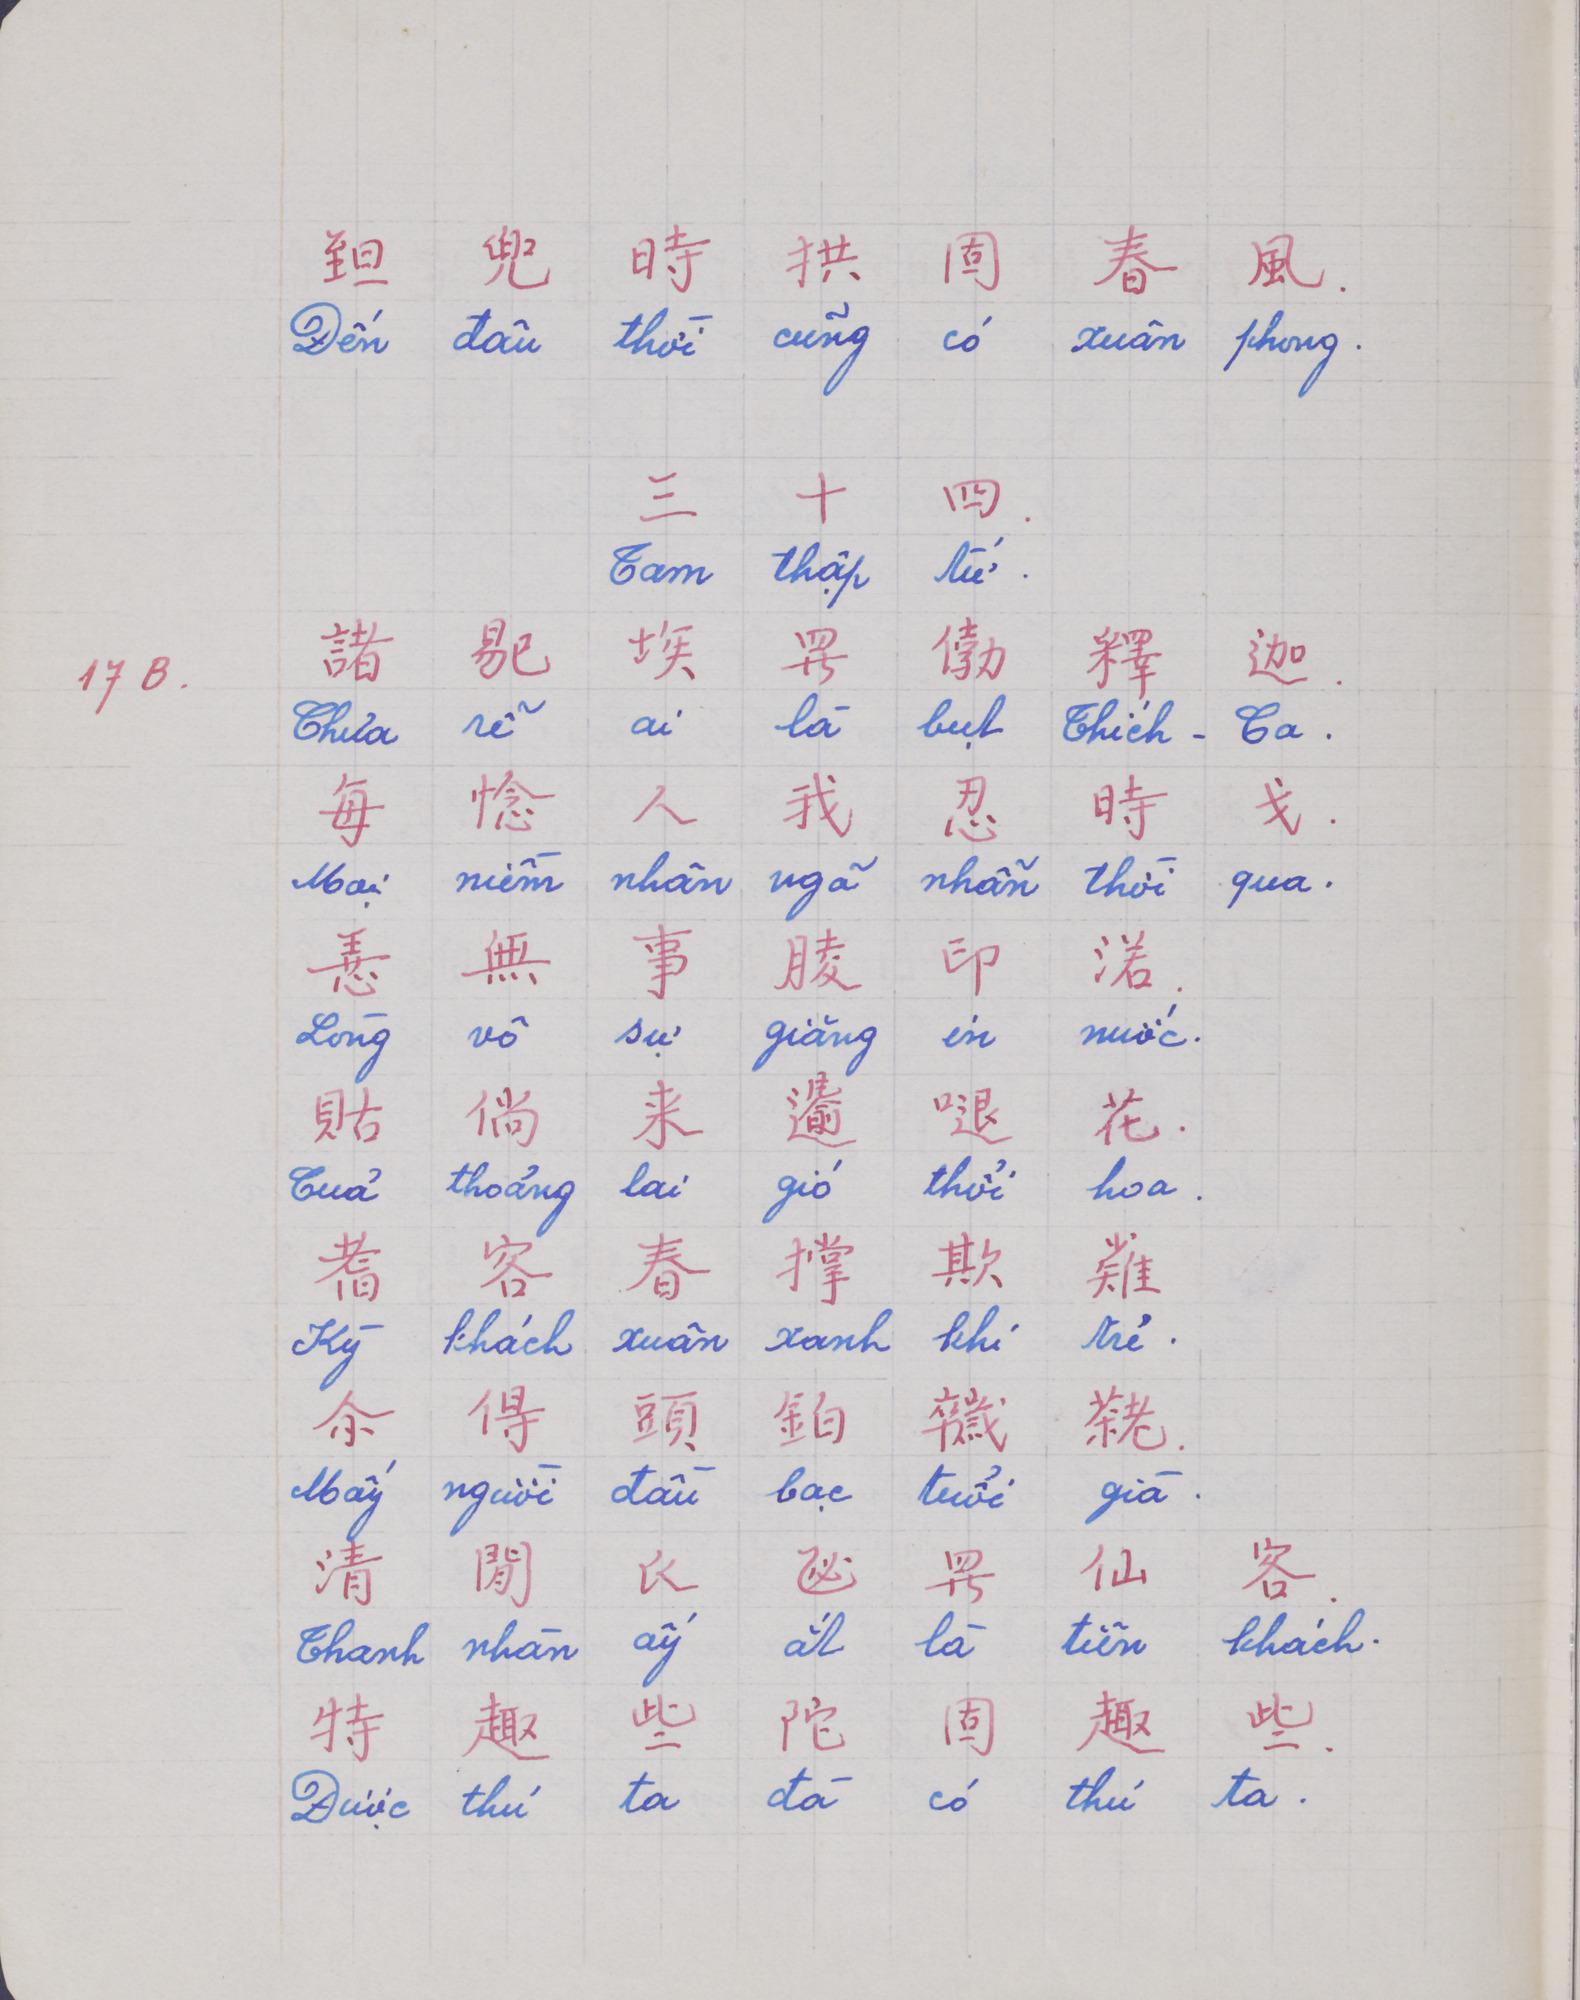 𦤾 兜 時 拱 固 春 風.
Đến đâu thời cũng có xuân phong.
三 十 四.
Tam thập tứ.
17 B.
諸 易 埃 羅 𠍣 釋 迦.
Chửa rễ ai là bụt Thích - Ca.
每 惗 人 我 忍 時 戈.
Mọi niềm nhân ngã nhẫn thời qua.
𢚸 無 事 𦝄 印 渃.
Lòng vô sự giăng in nước.
貼 倘 来 𨗺 𠺙 花.
Của thoảng lai gió thổi hoa.
耆 客 春 撑 欺
Kỳ khách xuân xanh khi trẻ.
尒 得 頭 鉑 𢆫
Mấy người đầu bạc tuổi già.
清 閒 氏 羅 仙 客.
Thanh nhàn ấy ắt là tiên khách.
特 趣 些 陀 固 趣 些.
Được thú ta đà có thú ta.